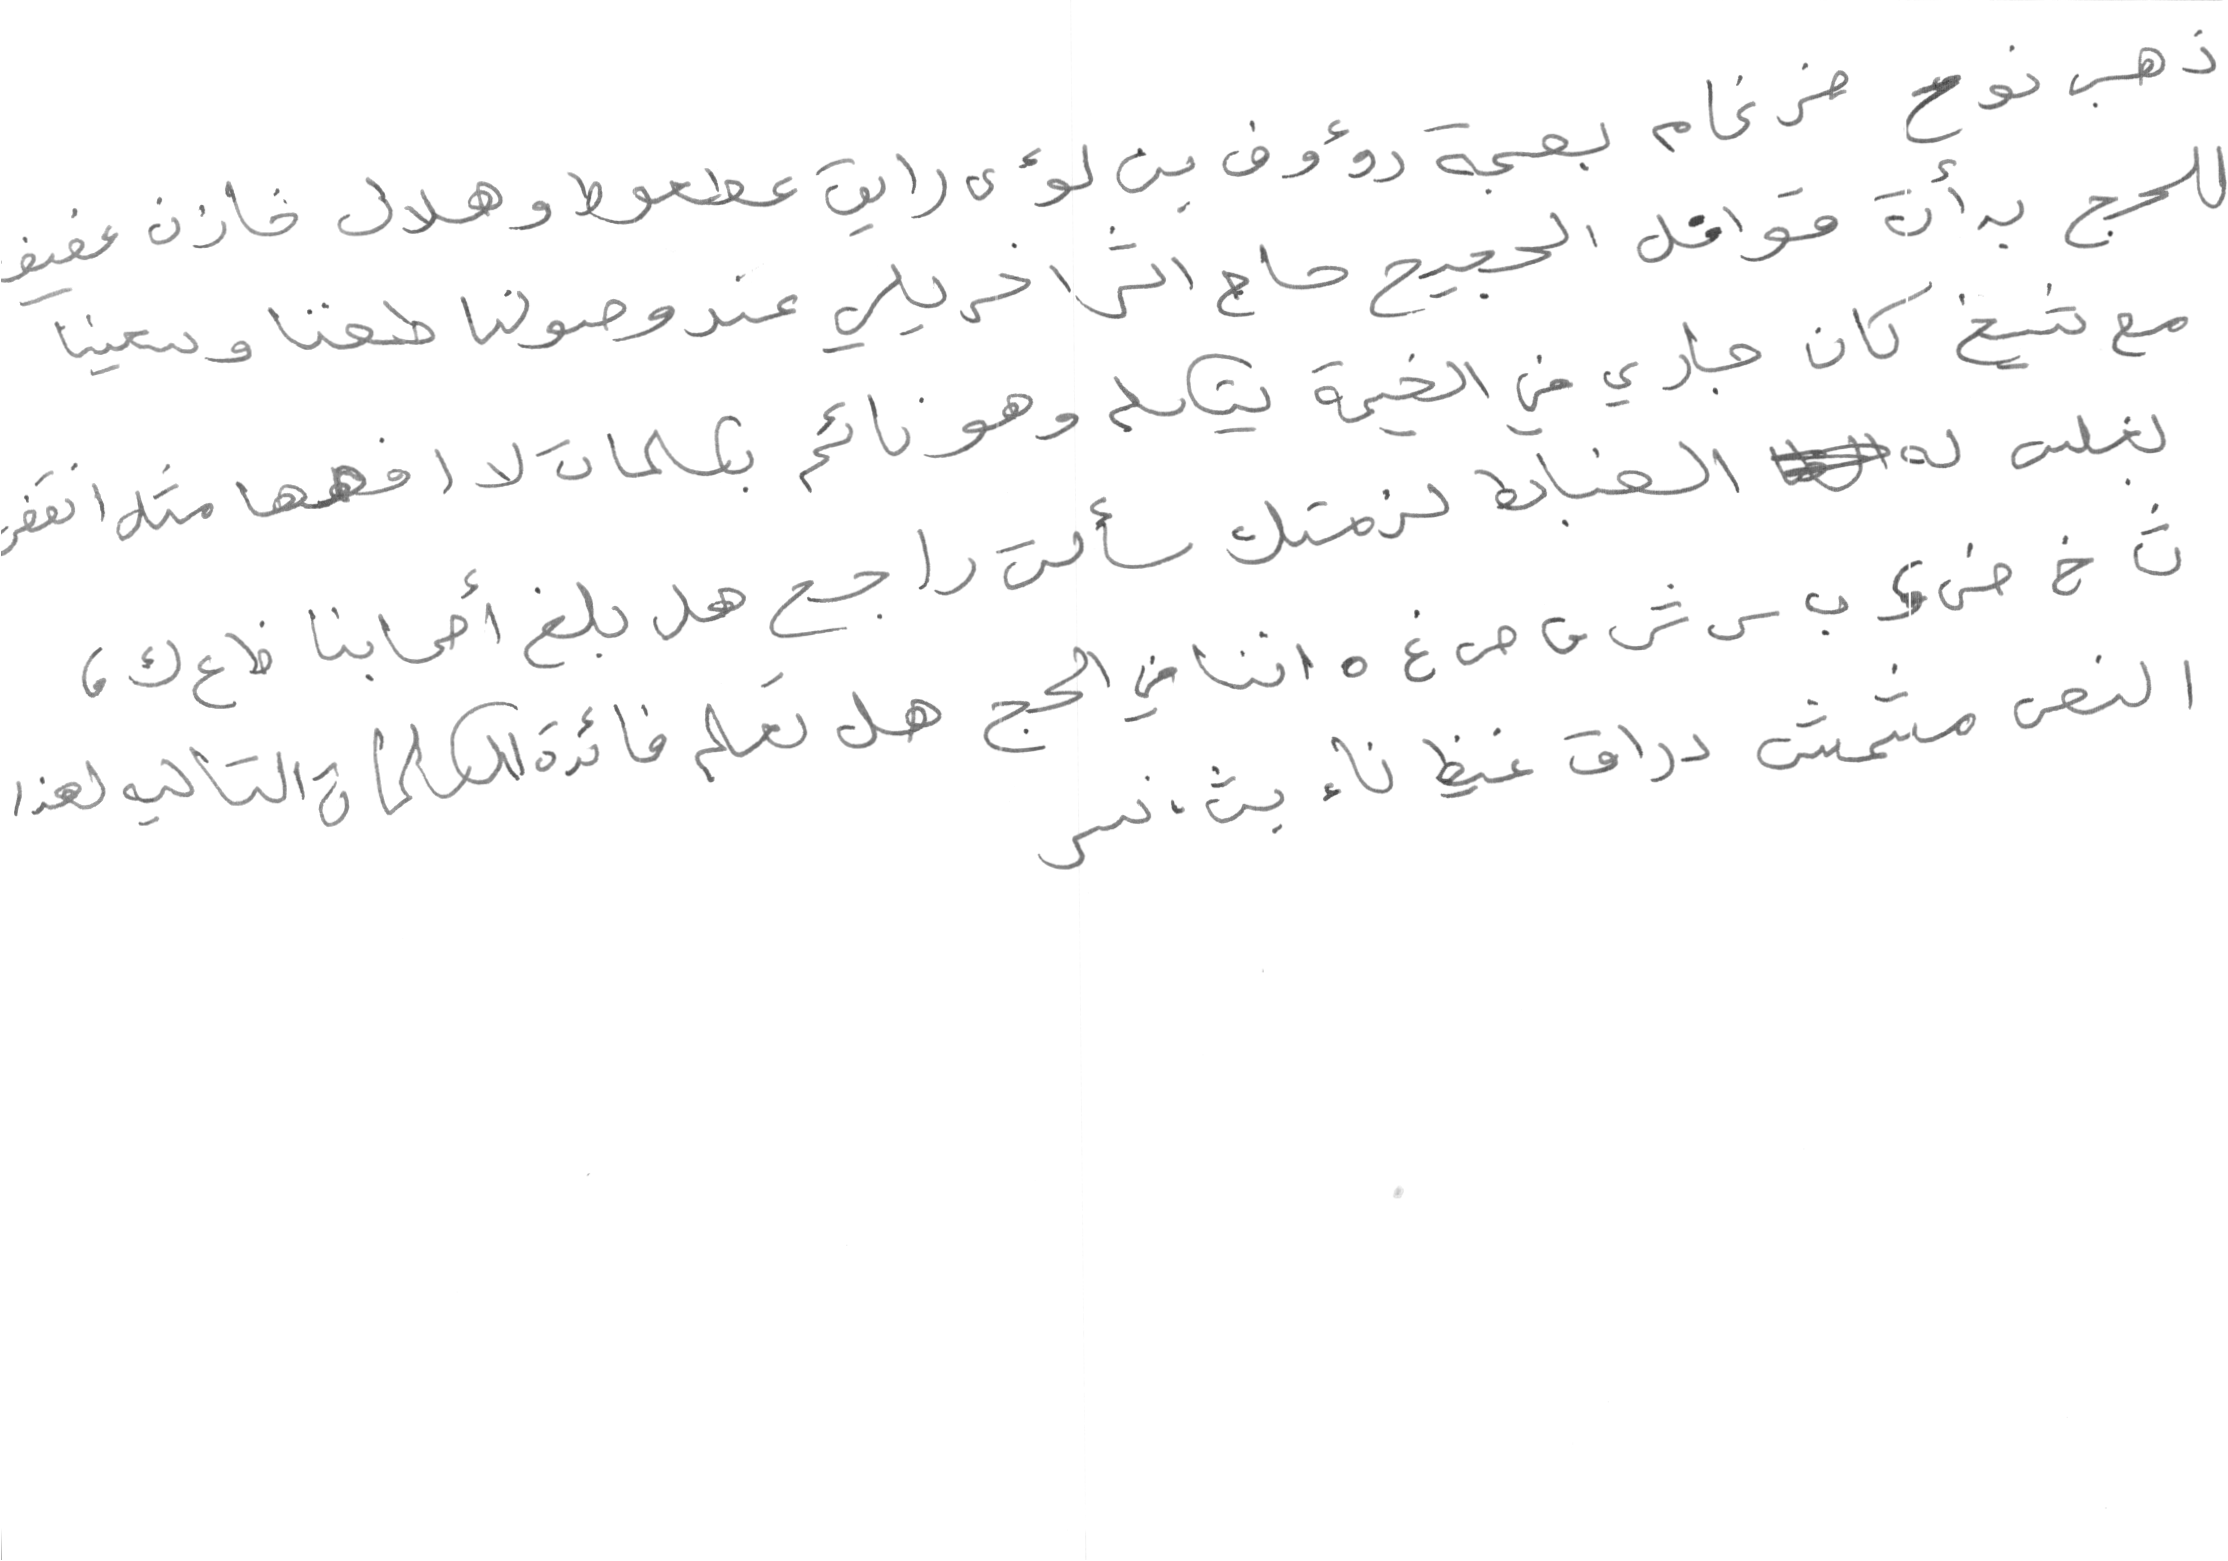 ذهب نوح ضرغام بصحبة رؤوف بن لؤى رايق عطعوط وهلال خازن عفيف
للحج بدأت قوافل الحجيج حاج اثر اخر يلبي عند وصولنا طعنا وسعينا
مع شيخ كان جاري في الخيمة يتكلم وهو نائم بكلمات لا افهمها مثل انقض
لغلب له الضابط لزمتك سألت راجح هل بلغ أصحابنا ظ ع ك ء
ث خ ض ى ب س ش ص غ ه اننا في الحج هل تعلم فائدة الكلمات التاليه لهذا
النص مشمش دراق غيظ ناء يث نسر